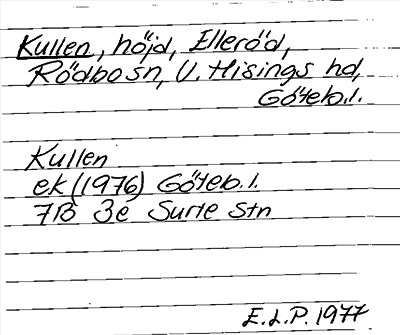 Kullen, höjd, Elleröd,
Rödbo sn, V. Hisings hd,
Göteb.l.
Kullen
ek (1976) Göteb. l.
7B 3e Surte Stn
E.L.P. 1977